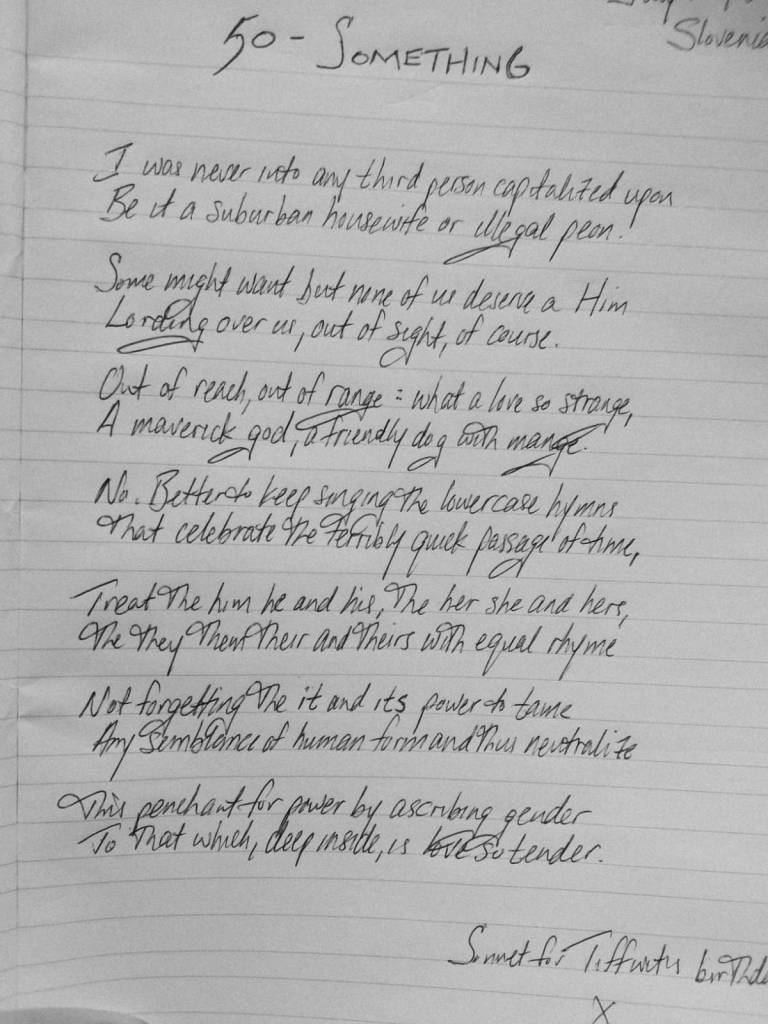 Slovenia
50 - SOMETHING
I was never into any third person capitalized upon
Be it a suburban housewife or illegal peon.
Some might want but none of us deserve a Him
Lording over us, out of sight, of course.
Out of reach, out of range: what a love so strange,
A maverick god, a friendly dog with mange.
No. Better to keep singing the lowercase hymns
That celebrate the terribly quick passage of time,
Treat the him he and his, the her she and hers,
The they them their and theirs with equal rhyme
Not forgetting the it and its power to tame
Any semblance of human form and thus neutralize
This penchant for power by ascribing gender
To that which, deep inside, is so tender.
Sonnet for
X